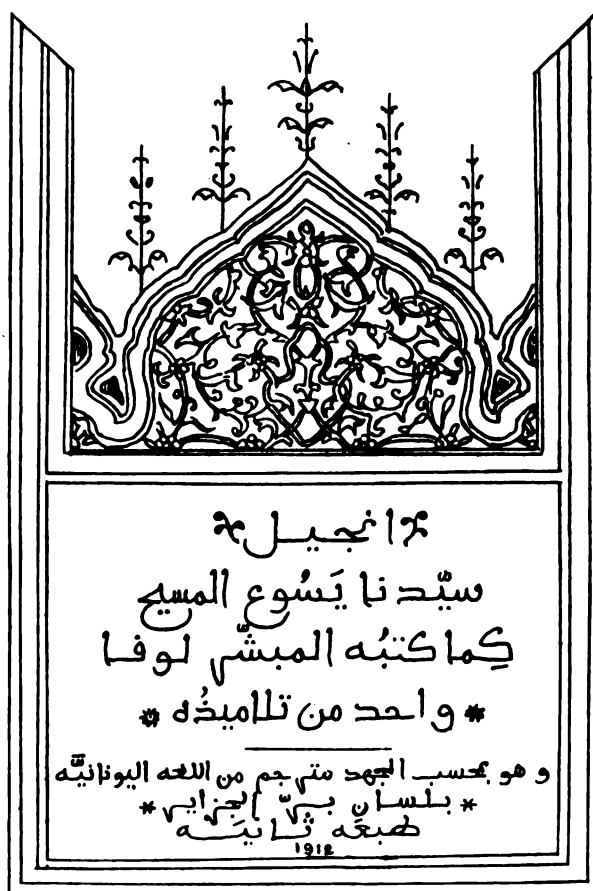 * انجيل *
سيّدنا يَسُوع المسيح
كِما كتبُه المبشّر لوقا
* واحد من تلاميذُه *
و هو بحسب الجهد مترجم من اللغه اليونانيّه
* بلسان برّ الجزاير *
طبعَه ثانيَه
1912